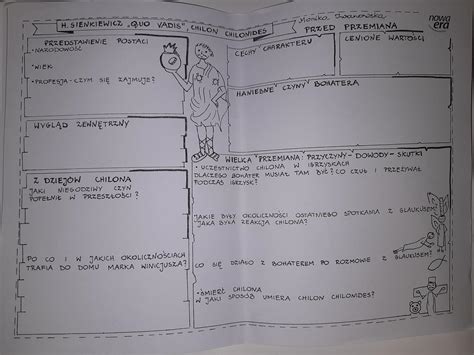 H. SIENKIEWICZ „QUO VADIS", CHILON CHILONIDES
nowa
era
PRZEDSTAWIENIE POSTACI
•NARODOWOŚĆ
•WIEK
•PROFESJA-CZYM SIĘ ZAJMUJE?
WYGLĄD ZEWNĘTRZNY
Z DZIEJÓW CHILONA
JAKI NIEGODZIWY CZYN
POPEŁNIŁ W PRZESZŁOŚCI?
PO CO I W JAKICH OKOLICZNOŚCIACH
TRAFIA DO DOMU MARKA WINICJUSZA?
PRZED PRZEMIANĄ
CECHY CHARAKTERU
CENIONE WARTOŚCI
HANIEBNE CZYNY BOHATERA
WIELKA PRZEMIANA: PRZYCZYNY-DOWODY-SKUTKI
•UCZESTNICTWO CHILONA W IGRZYSKACH
DLACZEGO BOHATER MUSIAŁ TAM BYĆ? CO CZUŁ I PRZEŻYWAŁ
PODCZAS IGRZYSK?
JAKIE BYŁY OKOLICZNOŚCI OSTATNIEGO SPOTKANIA Z GLAUKUSEM?
JAKA BYŁA REAKCJA CHILONA?
CO SIĘ DZIAŁO Z BOHATEREM PO ROZMOWIE Z GLAUKUSEM?
•ŚMIERĆ CHILONA
W JAKI SPOSÓB UMIERA CHILON CHILONIDES?